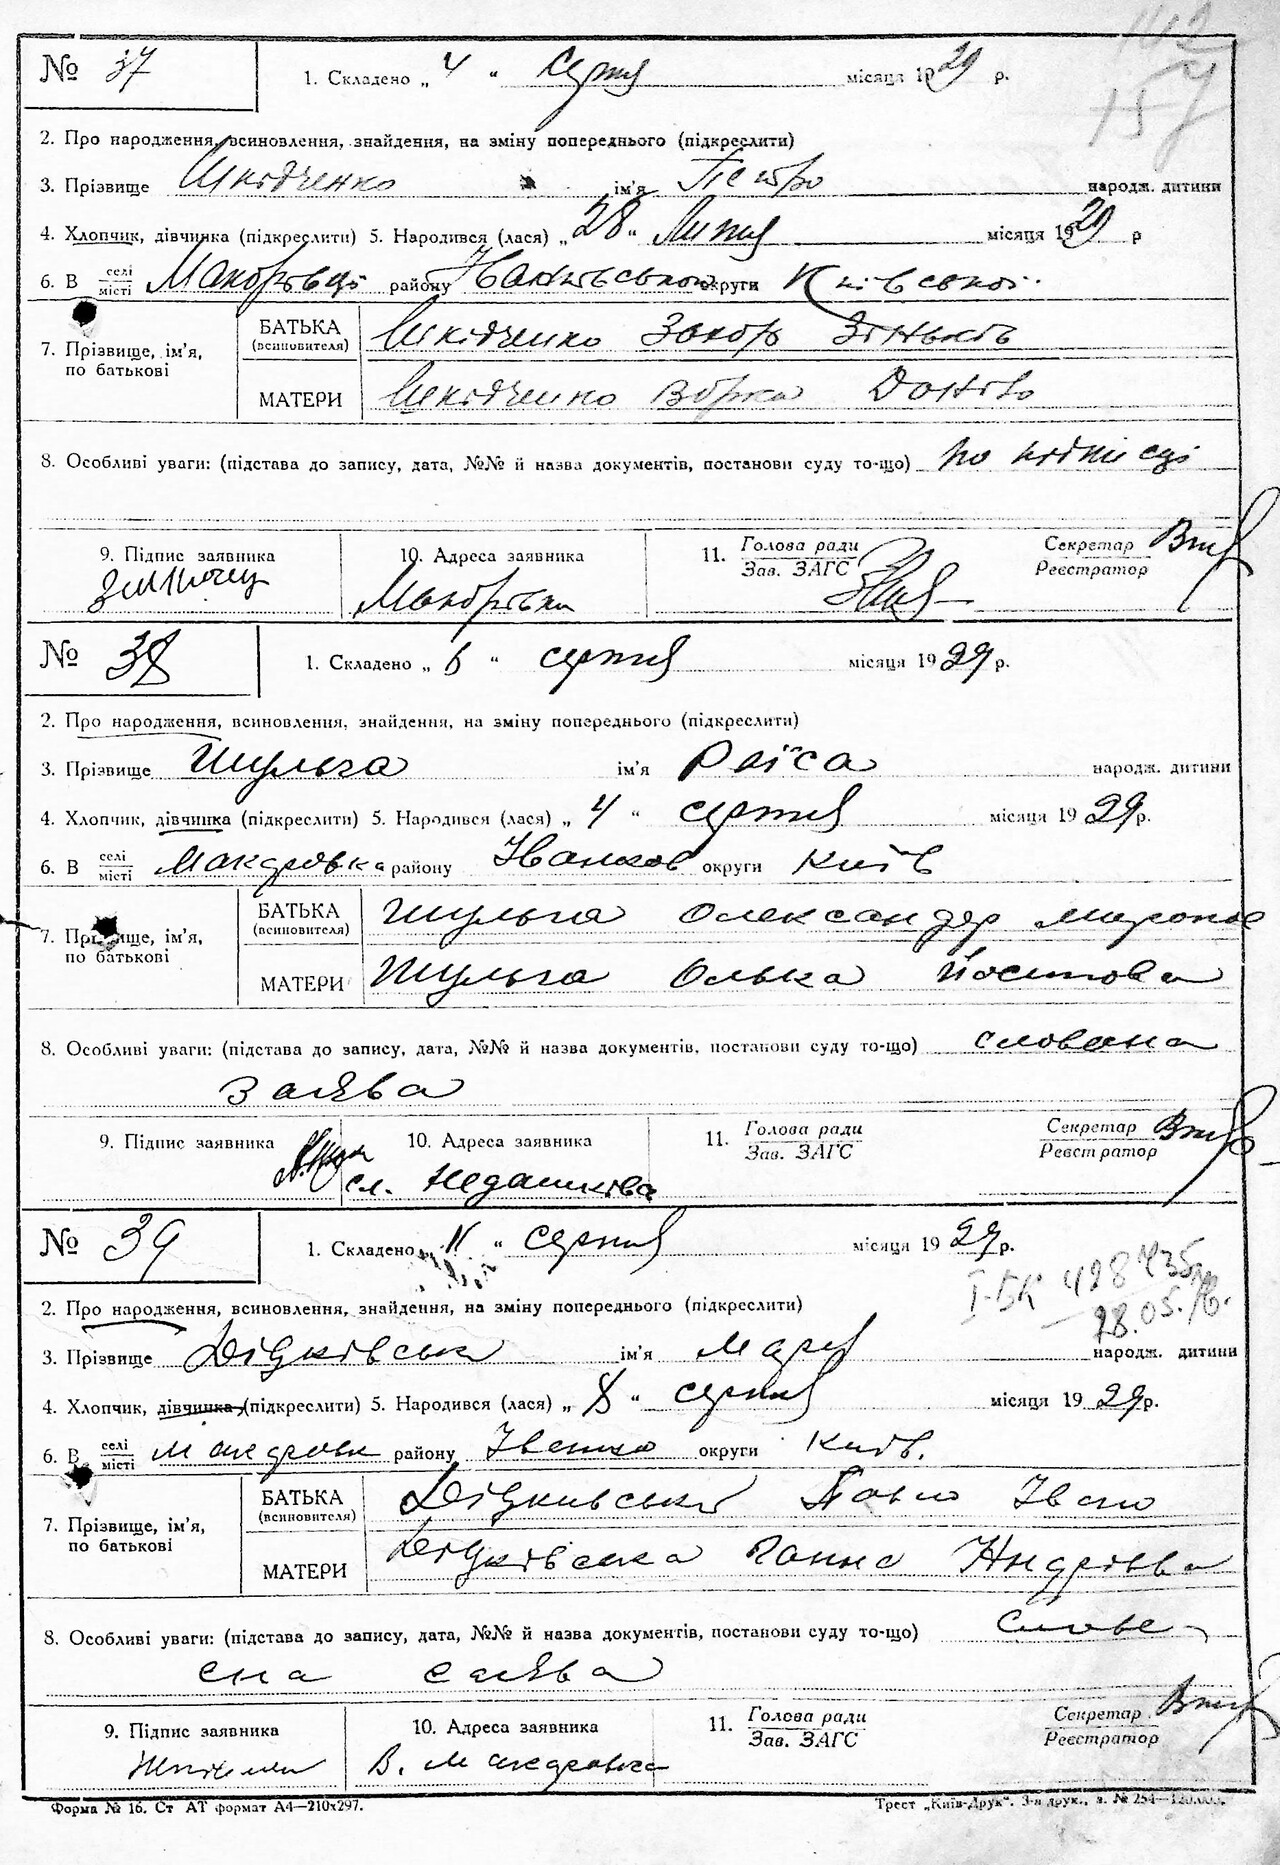 № 37 1. Складено „4“ серпня місяця 1929 р.
2. Про народження, всиновлення, знайдення, на зміну попереднього (підкреслити)
3. Прізвище Шкідченко ім'я Петро народж. дитини
4. Хлопчик, дівчинка (підкреслити) 5. Народився (лася) „28“ Липня місяця 1929 р
6. В селі місті району округи Київської
7. Прізвище, ім'я, по батькові
БАТЬКА (всиновителя) Шкідченко Захор Зіньків
МАТЕРИ Шкідченко
8. Особливі уваги: (підстава до запису, дата, №№ й назва документів, постанови суду то-що) по
9. Підпис заявника 10. Адреса заявника 11. Голова ради Зав. ЗАГС Секретар Реєстратор
№ 38 1. Складено „6“ серпня місяця 1929 р.
2. Про народження, всиновлення, знайдення, на зміну попереднього (підкреслити)
3. Прізвище Шульга ім'я Раїса народж. дитини
4. Хлопчик, дівчинка (підкреслити) 5. Народився (лася) „4“ серпня місяця 1929 р.
6. В селі місті Макаровка району Іванков округи Київ
7. Прізвище, ім'я, по батькові
БАТЬКА (всиновителя) Шульга Олександер Миронов
МАТЕРИ Шульга Олька Йосипова
8. Особливі уваги: (підстава до запису, дата, №№ й назва документів, постанови суду то-що) словесна
заява
9. Підпис заявника 10. Адреса заявника 11. Голова ради Зав. ЗАГС Секретар Реєстратор
сл.
№ 39 1. Складено „11“ серпня місяця 1929 р.
I-БК 428435
28.05.76.
2. Про народження, всиновлення, знайдення, на зміну попереднього (підкреслити)
3. Прізвище Дідківська ім'я Марія народж. дитини
4. Хлопчик, дівчинка (підкреслити) 5. Народився (лася) „8“ серпня місяця 1929 р.
6. В селі місті району округи Київ.
7. Прізвище, ім'я, по батькові
БАТЬКА (всиновителя) Дідківський Павло Івано
МАТЕРИ Дідківська Ганна Андрієва
8. Особливі уваги: (підстава до запису, дата, №№ й назва документів, постанови суду то-що) слове-
сна заява
9. Підпис заявника 10. Адреса заявника 11. Голова ради Зав. ЗАГС Секретар Реєстратор
Форма № 16. Ст АТ формат А4—210x297. Трест „Київ-Друк“. 3-я друк., з. № 254—